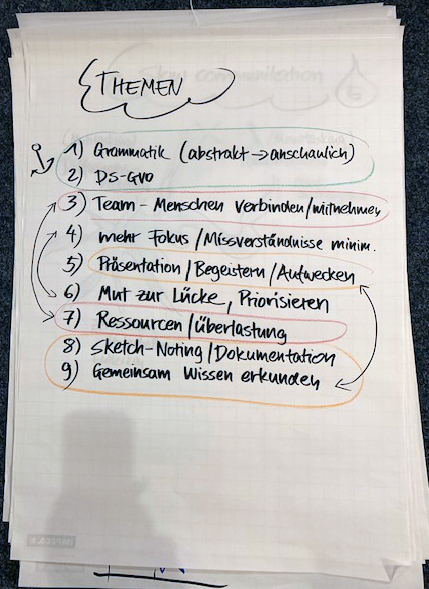 THEMEN
1) Grammatik (abstrakt → anschaulich)
2) DS-GVO
3) Team - Menschen verbinden/mitnehmen
4) mehr Fokus / Missverständnisse minim.
5) Präsentation / Begeistern / Aufwecken
6) Mut zur Lücke, Priorisieren
7) Ressourcen / Überlastung
8) Sketch-Noting / Dokumentation
9) Gemeinsam Wissen erkunden